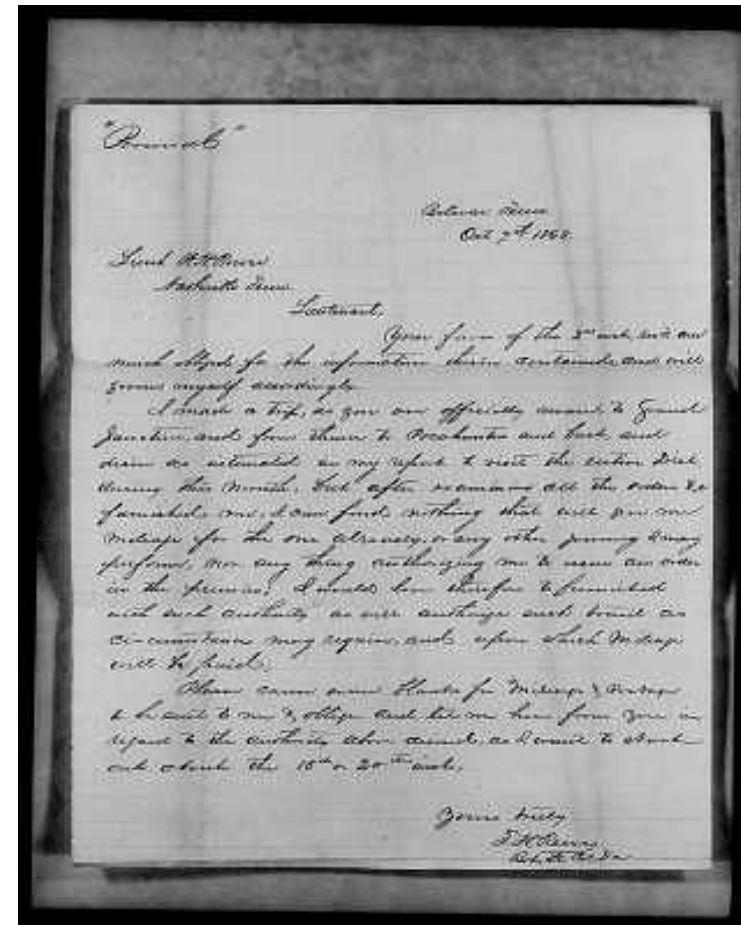 "Personal"
Bolivar Tenn
Oct 7th 1868.
Lieut
Nashville Tenn
Lieutenant,
Your favor of the 3rd inst. and am
much obliged for the information therein contained, and will
govern myself accordingly.
I made a trip, as you are officially aware, to Grand
Junction, and from thence to Pocahontas and back, and
desire as estimated in my report to visit the entire Dist
during this month, but after examining all the orders &c
furnished me, I can find nothing that will give me
mileage for the one already, or any other journey I may
perform, nor any thing authorizing me to issue an order
in the premises. I would love therefore to furnished
with such authority as will authorize such travel as
circumstances may require, and upon which Mileage
will be paid.
Please cause some Blanks for Mileage &
to be sent to me & oblige and let me hear from you in
regard to the authority above, as I want to start
out about the 15th or 20th inst.
Yours truly